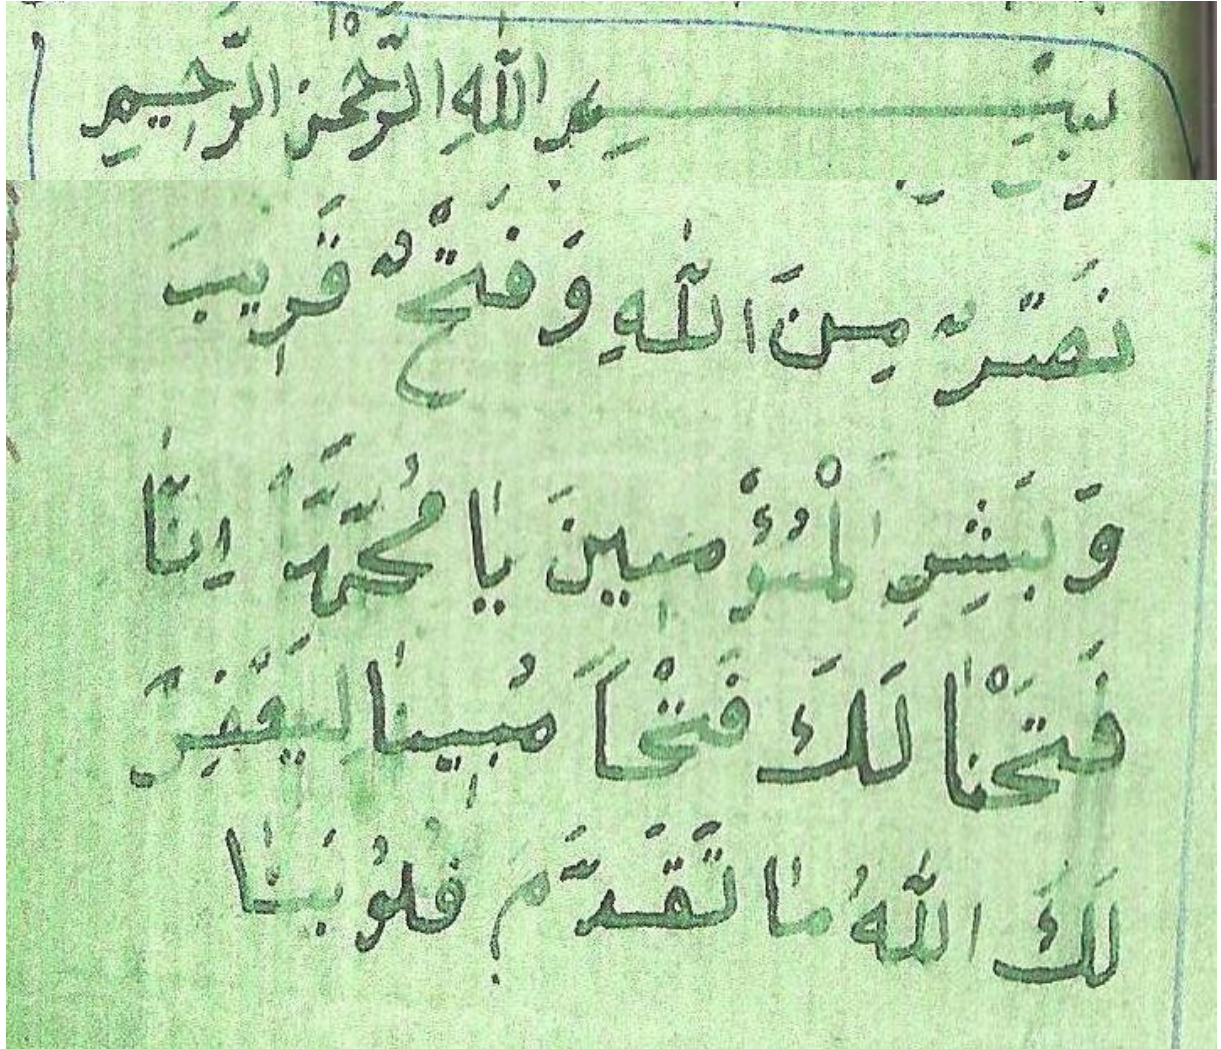 بِسْمِ اللّٰهِ الرَّحْمٰنِ الرَّحِيمِ
نَصْرٌ مِنَ اللّٰهِ وَفَتْحٌ قَرِيبَ
وَبَشِّرِ الْمُؤْمِنِينَ يَا مُحَمَّدُ اِنَّا
فَتَحْنَا لَكَ فَتْحًا مُبِينًا لِيَغْفِرَ
لَكَ اللّٰهُ مَا تَقَدَّمَ قُلُوبَنَا